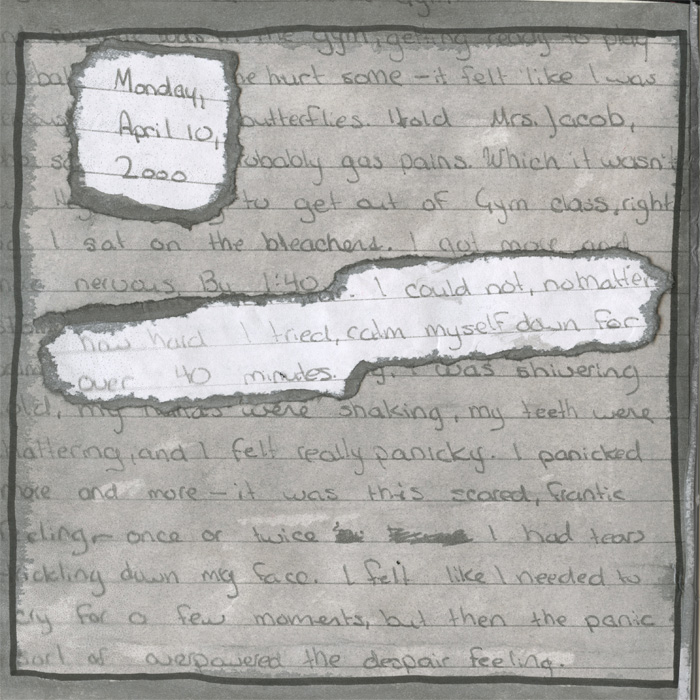 was in the gym, getting ready to play
Monday, he hurt some - it felt like I was
April 10, butterflies. I told Mrs. Jacob,
2000 probably gas pains. Which it wasn't
to get out of Gym class, right
I sat on the bleachers. I got more and
nervous. By 1:40 I could not, no matter
how hard I tried, calm myself down for
over 40 minutes. I was shivering
my hands were shaking, my teeth were
hattering, and I felt really panicky. I panicked
more and more - it was this scared, frantic
eeling - once or twice I had tears
rickling down my face. I felt like I needed to
cry for a few moments, but then the panic
sort of overpowered the despair feeling.